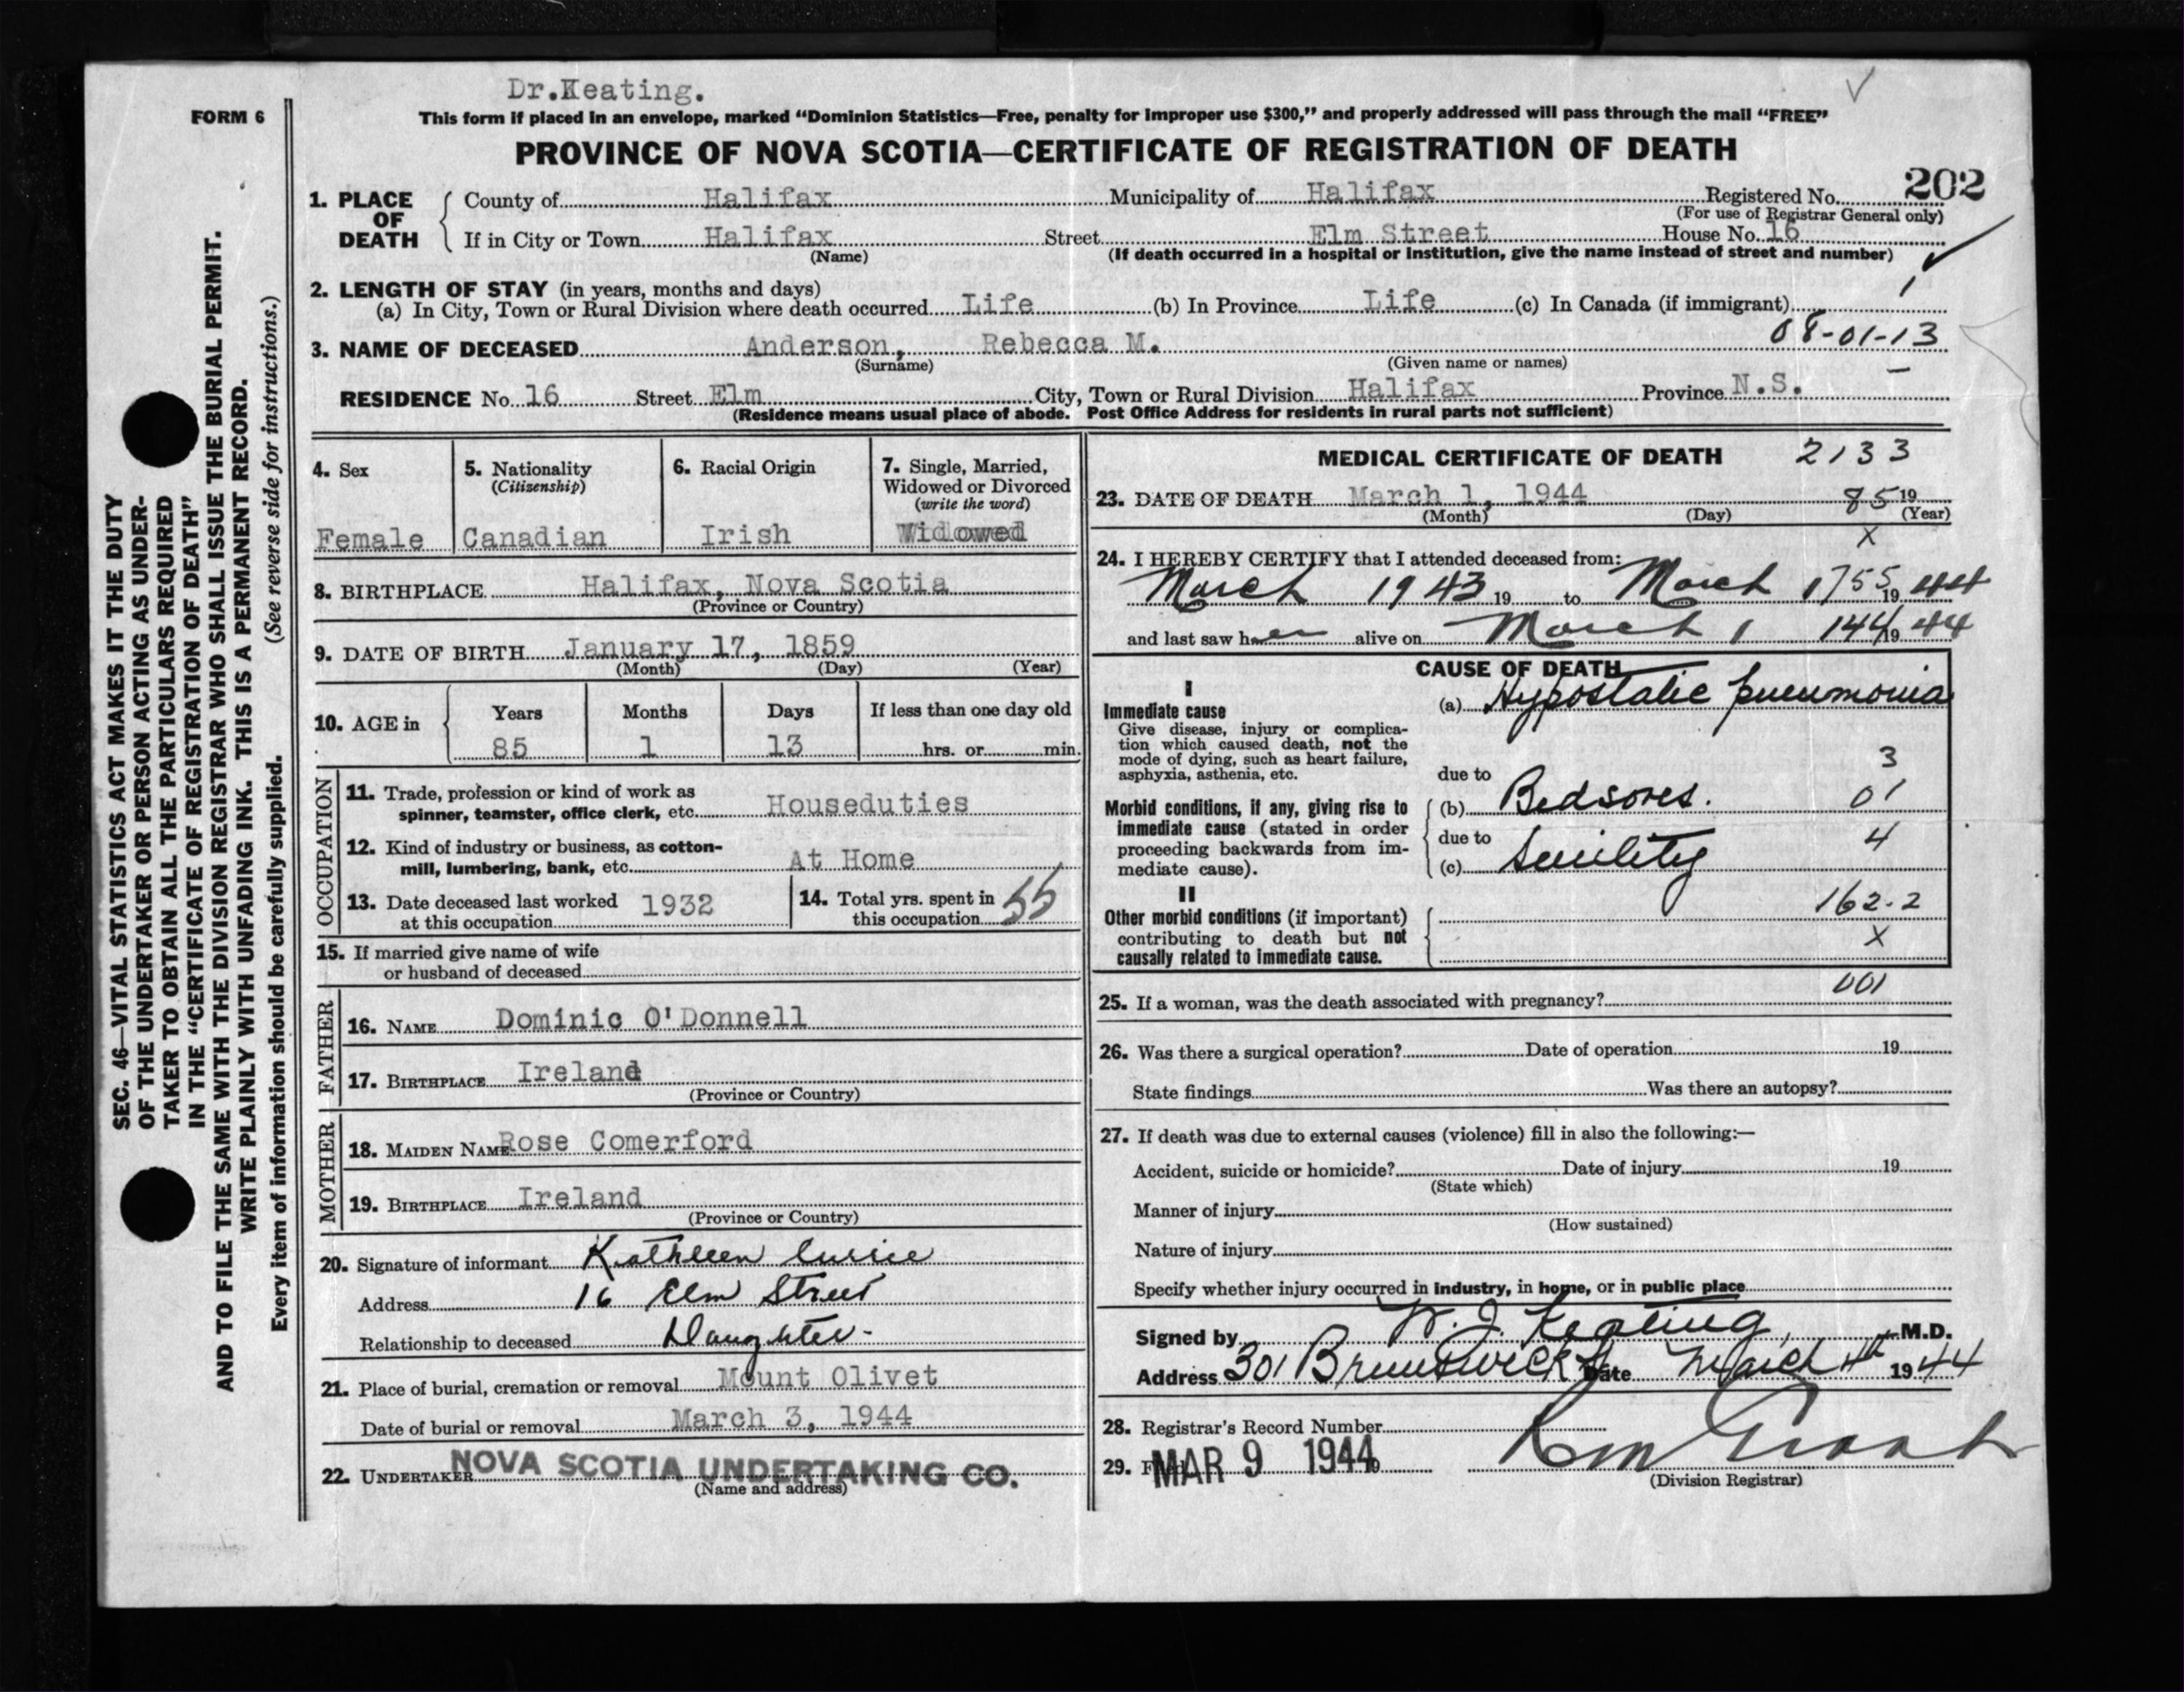 Dr.Keating.
FORM 6
This form if placed in an envelope, marked “Dominion Statistics—Free, penalty for improper use $300,” and properly addressed will pass through the mail “FREE”
PROVINCE OF NOVA SCOTIA—CERTIFICATE OF REGISTRATION OF DEATH
202
1. PLACE OF DEATH
County of Halifax Municipality of Halifax Registered No.
(For use of Registrar General only)
If in City or Town Halifax Street Elm Street House No. 16
(Name) (If death occurred in a hospital or institution, give the name instead of street and number)
2. LENGTH OF STAY (in years, months and days)
(a) In City, Town or Rural Division where death occurred Life (b) In Province Life (c) In Canada (if immigrant)
08-01-13
3. NAME OF DECEASED Anderson, Rebecca M.
(Surname) (Given name or names)
RESIDENCE No. 16 Street Elm City, Town or Rural Division Halifax Province N.S.
(Residence means usual place of abode. Post Office Address for residents in rural parts not sufficient)
4. Sex
Female
5. Nationality
(Citizenship)
Canadian
6. Racial Origin
Irish
7. Single, Married,
Widowed or Divorced
(write the word)
Widowed
8. BIRTHPLACE Halifax, Nova Scotia
(Province or Country)
9. DATE OF BIRTH January 17, 1859
(Month) (Day) (Year)
10. AGE in
Years Months Days If less than one day old
85 1 13 hrs. or min.
OCCUPATION
11. Trade, profession or kind of work as
spinner, teamster, office clerk, etc. Houseduties
12. Kind of industry or business, as cotton-
mill, lumbering, bank, etc. At Home
13. Date deceased last worked
at this occupation 1932
14. Total yrs. spent in
this occupation 55
15. If married give name of wife
or husband of deceased
FATHER
16. NAME Dominic O'Donnell
17. BIRTHPLACE Ireland
(Province or Country)
MOTHER
18. MAIDEN NAME Rose Comerford
19. BIRTHPLACE Ireland
(Province or Country)
20. Signature of informant Kathleen
Address 16 Elm Street
Relationship to deceased Daughter-
21. Place of burial, cremation or removal Mount Olivet
Date of burial or removal March 3, 1944
22. UNDERTAKER NOVA SCOTIA UNDERTAKING CO.
(Name and address)
MEDICAL CERTIFICATE OF DEATH 2133
23. DATE OF DEATH March 1, 1944 85 19
(Month) (Day) (Year)
X
24. I HEREBY CERTIFY that I attended deceased from:
March 1943 19 to March 1 755 19 44
and last saw her alive on March 1 144 19 44
CAUSE OF DEATH
I
Immediate cause
Give disease, injury or complica-
tion which caused death, not the
mode of dying, such as heart failure,
asphyxia, asthenia, etc.
(a) Hypostatic pneumonia
3
due to
Morbid conditions, if any, giving rise to
immediate cause (stated in order
proceeding backwards from im-
mediate cause).
(b) Bedsores. 01
due to 4
(c) Senility
II
Other morbid conditions (if important)
contributing to death but not
causally related to immediate cause.
162.2
X
001
25. If a woman, was the death associated with pregnancy?
26. Was there a surgical operation? Date of operation 19
State findings Was there an autopsy?
27. If death was due to external causes (violence) fill in also the following:—
Accident, suicide or homicide? Date of injury 19
(State which)
Manner of injury
(How sustained)
Nature of injury
Specify whether injury occurred in industry, in home, or in public place
Signed by W. J. Keating, M.D.
Address 301 Brunswick St Date March 4th 1944
28. Registrar's Record Number
29. MAR 9 1944
(Division Registrar)
SEC. 46—VITAL STATISTICS ACT MAKES IT THE DUTY
OF THE UNDERTAKER OR PERSON ACTING AS UNDER-
TAKER TO OBTAIN ALL THE PARTICULARS REQUIRED
IN THE “CERTIFICATE OF REGISTRATION OF DEATH”
AND TO FILE THE SAME WITH THE DIVISION REGISTRAR WHO SHALL ISSUE THE BURIAL PERMIT.
WRITE PLAINLY WITH UNFADING INK. THIS IS A PERMANENT RECORD.
Every item of information should be carefully supplied. (See reverse side for instructions.)